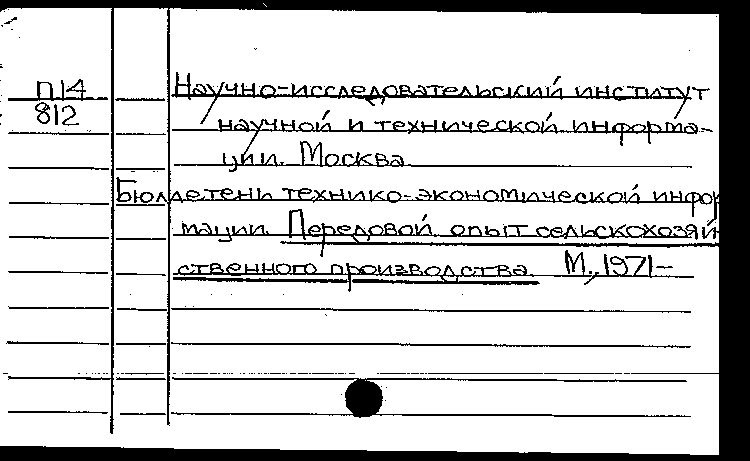 П14
812
Научно-исследовательский институт
научной и технической информа-
ции. Москва.
Бюллетень технико-экономической инфор
мации. Передовой опыт сельскохозяй
ственного производства. М., 1971-